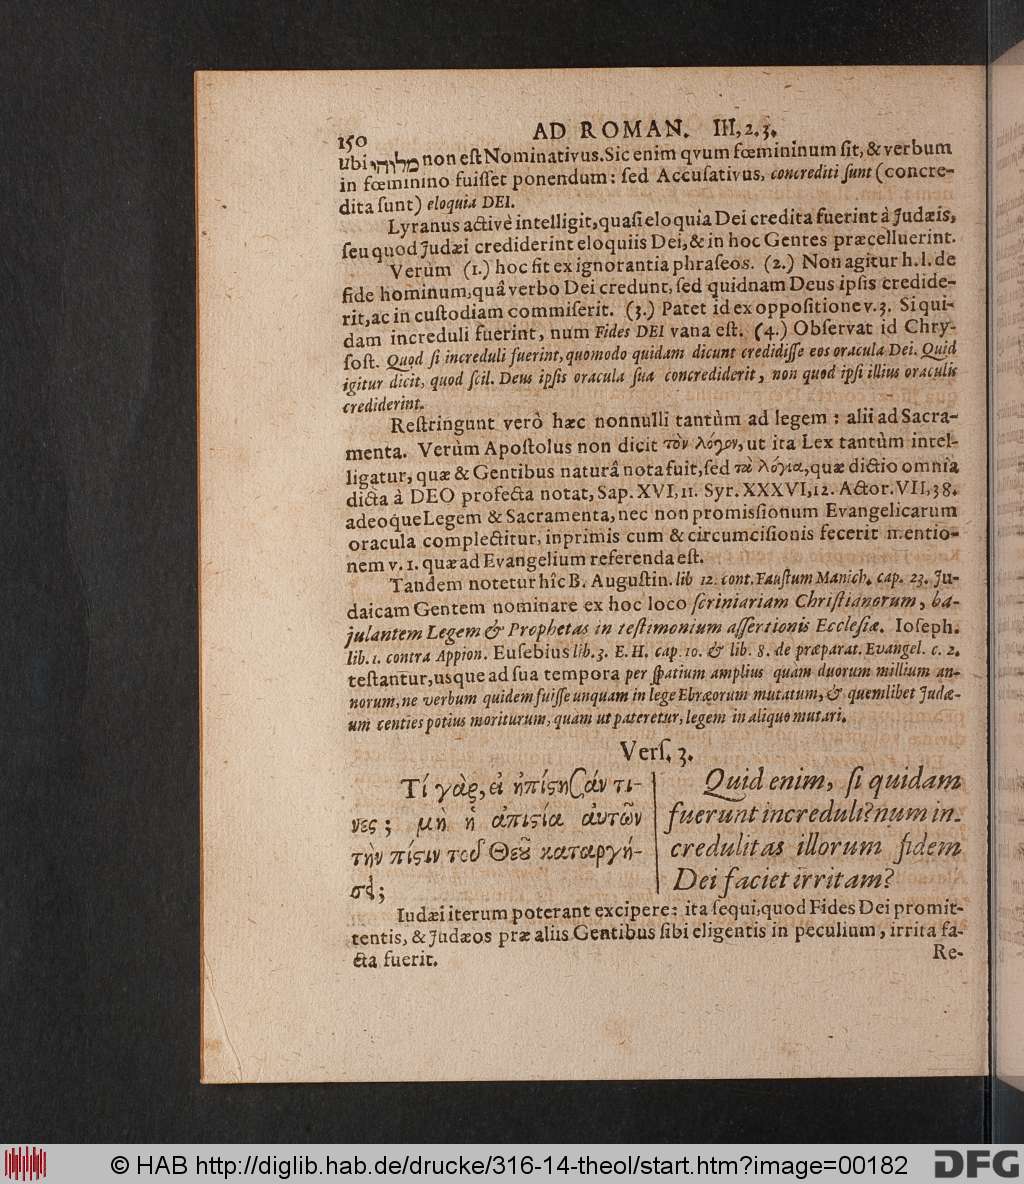 150 AD ROMAN. III, 2. 3.
ubi מלוהי non eſt Nominativus. Sic enim qvum fœmininum ſit, & verbum
in fœminino fuiſſet ponendum: ſed Accuſativus, concrediti ſunt (concre-
dita ſunt) eloquia DEI.
Lyranus activè intelligit, quaſi eloquia Dei credita fuerint à Judæis,
ſeu quod Judæi crediderint eloquiis Dei, & in hoc Gentes præcelluerint.
Verùm (1.) hoc fit ex ignorantia phraſeos. (2.) Non agitur h. l. de
fide hominum, quâ verbo Dei credunt, ſed quidnam Deus ipſis credide-
rit, ac in cuſtodiam commiſerit. (3.) Patet id ex oppoſitione v. 3. Si qui-
dam increduli fuerint, num Fides DEI vana eſt. (4.) Obſervat id Chry-
ſoſt. Quod ſi increduli fuerint, quomodo quidam dicunt credidiſſe eos oracula Dei. Quid
igitur dicit, quod ſcil. Deus ipſis oracula ſua concrediderit, non quod ipſi illius oraculis
crediderint.
Reſtringunt verò hæc nonnulli tantùm ad legem : alii ad Sacra-
menta. Verùm Apoſtolus non dicit τὸν λόγον, ut ita Lex tantùm intel-
ligatur, quæ & Gentibus naturâ nota fuit, ſed τὰ λόγια, quæ dictio omnia
dicta à DEO profecta notat, Sap. XVI, 11. Syr. XXXVI, 12. Actor. VII, 38.
adeoque Legem & Sacramenta, nec non promisſionum Evangelicarum
oracula complectitur, inprimis cum & circumciſionis fecerit mentio-
nem v. 1. quæ ad Evangelium referenda eſt.
Tandem notetur hîc B. Auguſtin. lib 12. cont. Fauſtum Manich. cap. 23. Ju-
daicam Gentem nominare ex hoc loco ſcriniariam Chriſtianorum, ba-
julantem Legem & Prophetas in teſtimonium aſſertionis Eccleſiæ. Ioſeph.
lib. 1. contra Appion. Euſebius lib. 3. E. H. cap. 10. & lib. 8. de præparat. Evangel. c. 2.
teſtantur, usque ad ſua tempora per ſpatium amplius quàm duorum millium an-
norum, ne verbum quidem fuiſſe unquam in lege Ebræorum mutatum, & quemlibet Judæ-
um centies potius moriturum, quam ut pateretur, legem in aliquo mutari.
Verſ. 3.
Τί γὰρ, εἰ ἠπίστησάν τι-
νες; μὴ ἡ ἀπιστία αὐτῶν
τὴν πίστιν τοῦ Θεοῦ καταργή-
σει;
Quid enim, ſi quidam
fuerunt increduli? num in-
credulitas illorum fidem
Dei faciet irritam?
Iudæi iterum poterant excipere: ita ſequi, quod Fides Dei promit-
tentis, & Judæos præ aliis Gentibus ſibi eligentis in peculium, irrita fa-
cta fuerit.
Re-
© HAB http://diglib.hab.de/drucke/316-14-theol/start.htm?image=00182
DFG